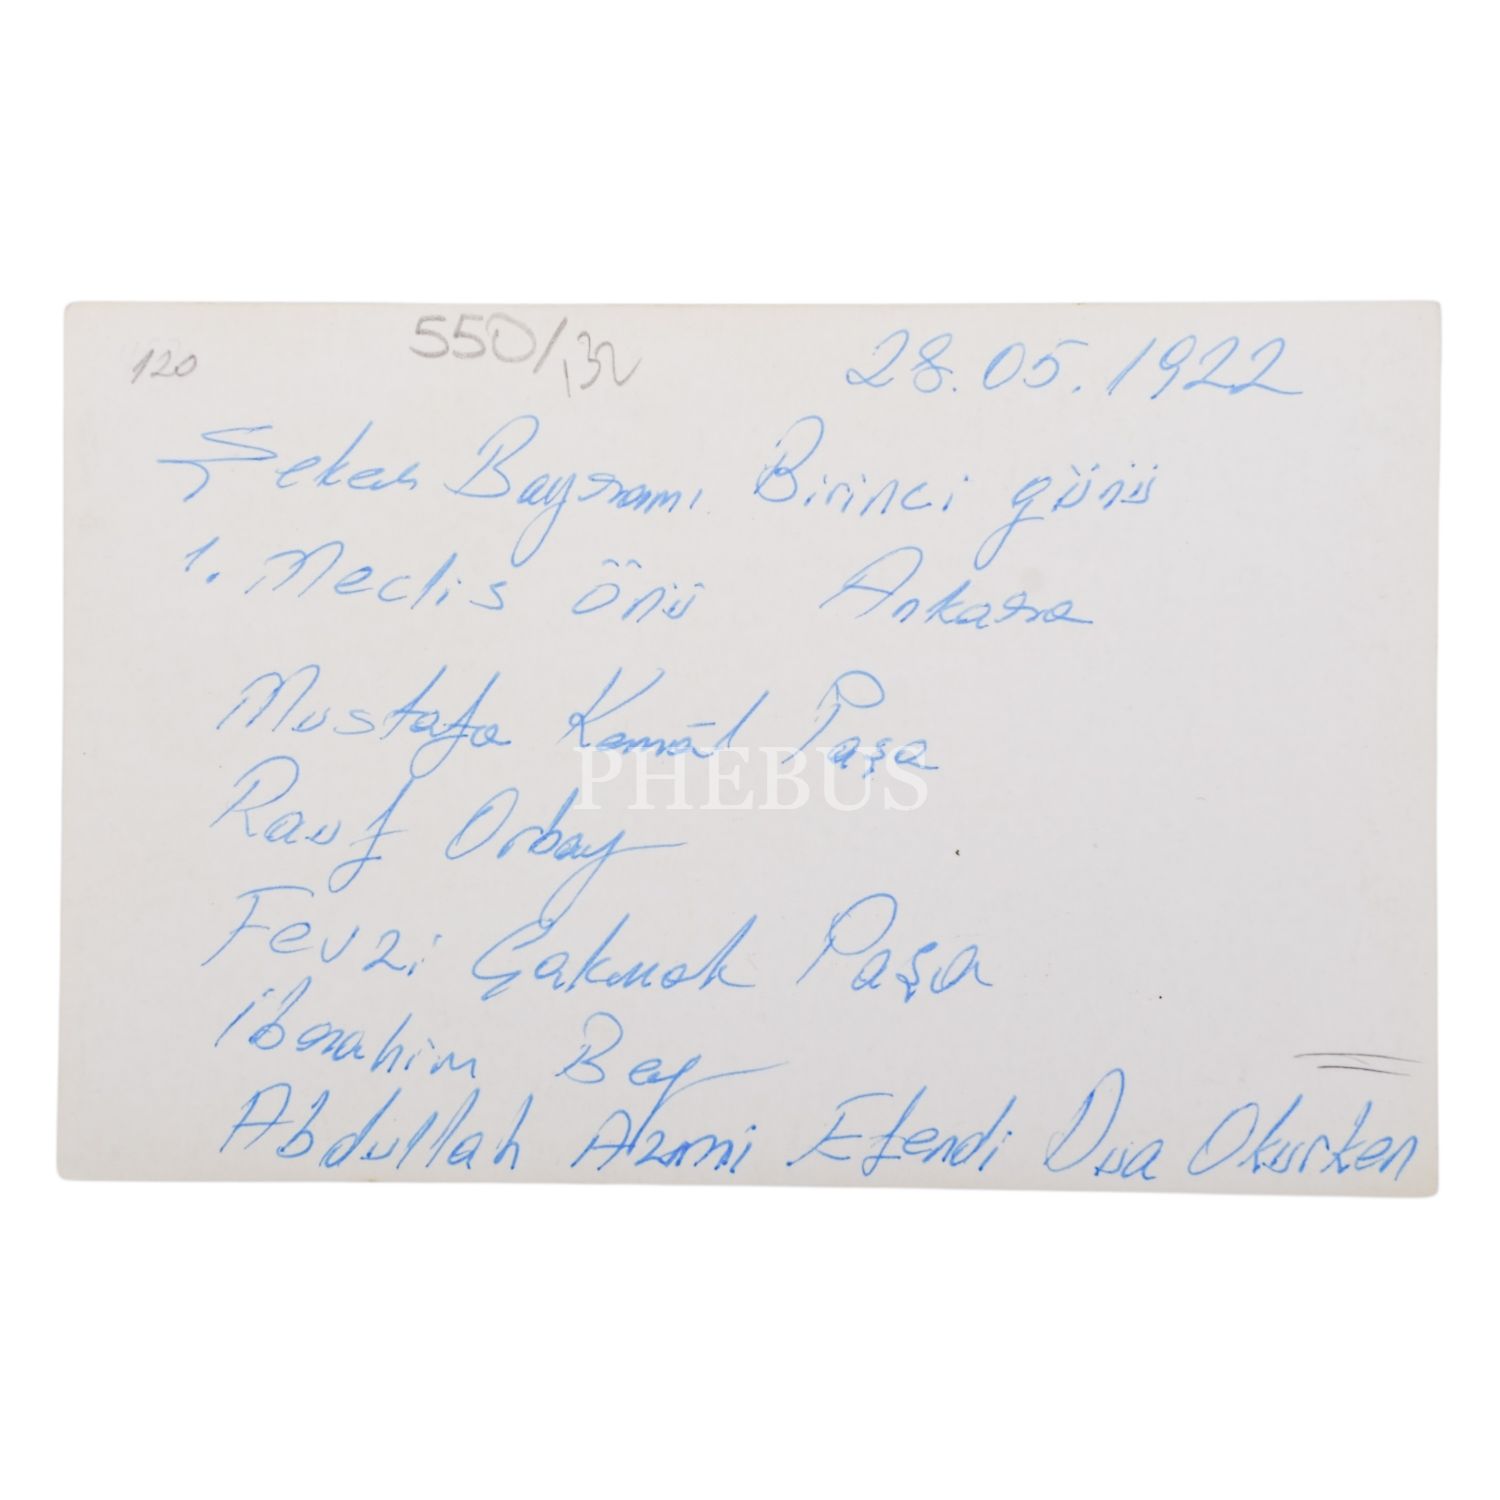 120 550/132 28.05.1922
Şeker Bayramı Birinci günü
1. Meclis Önü Ankara
Mustafa Kemâl Paşa
PHEBUS
Rauf Orbay
Fevzi Çakmak Paşa
İbrahim Bey
Abdullah Azmi Efendi Dua Okurken